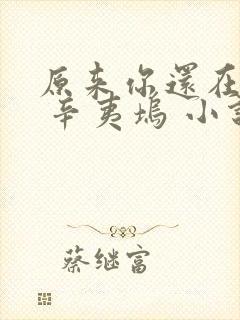 原来你還在
辛夷塢 小
蔡继富